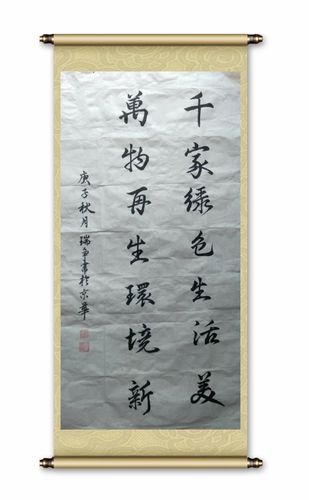 千家绿色生活美
萬物再生環境新
庚子秋月瑞争書於京華